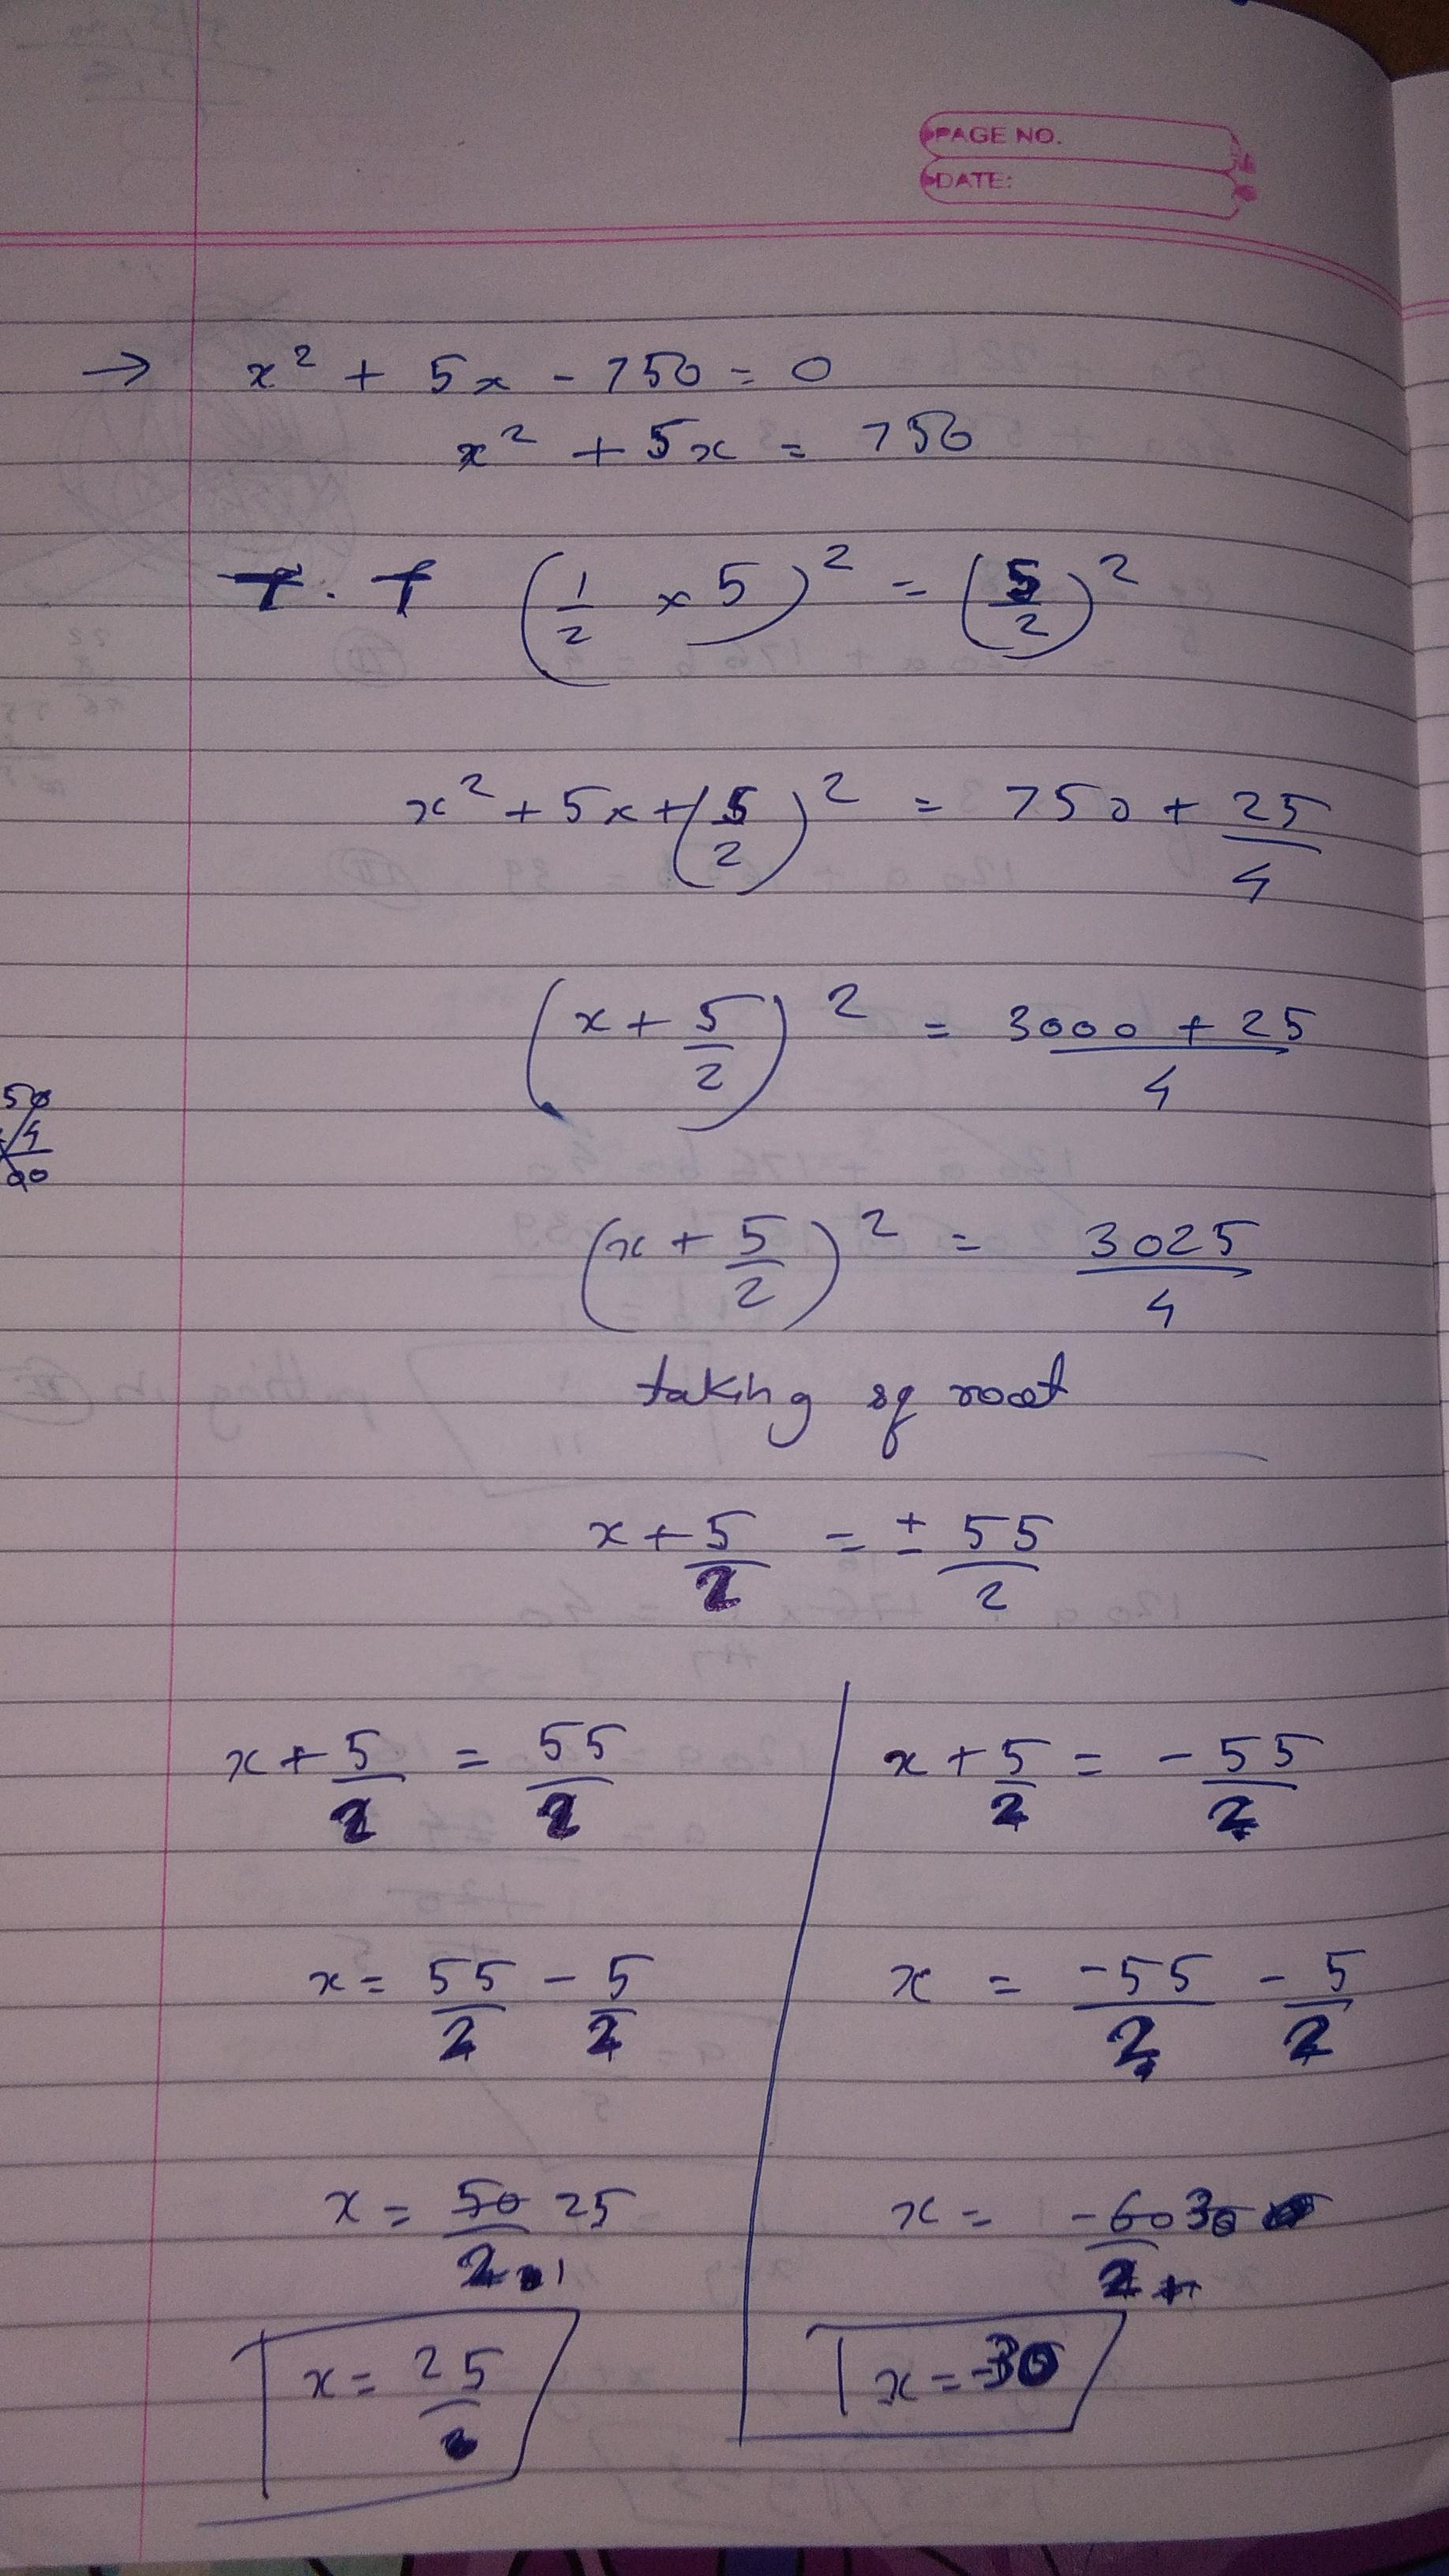 PAGE NO.
DATE:
→ x² + 5x - 750 = 0
x² + 5x = 750
(1/2 × 5)² = (5/2)²
x² + 5x + (5/2)² = 750 + 25/4
(x + 5/2)² = 3000 + 25/4
(x + 5/2)² = 3025/4
taking sq root
x + 5/2 = ± 55/2
x + 5/2 = 55/2
x = 55/2 - 5/2
x = 50/2 25
x = 25
x + 5/2 = -55/2
x = -55/2 - 5/2
x = -60/2 30
x = -30